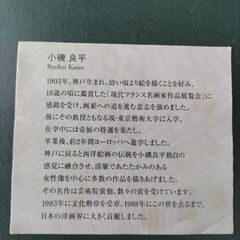 小磯 良平
Ryohei Koiso
1903年、神戸生まれ。幼い頃より絵を描くことを好み、
18歳の頃に鑑賞した「現代フランス名画家作品展覧会」に
感銘を受け、画家への道を進む意志を強めました。
後にその教授ともなる現・東京藝術大学に入学、
在学中には帝展の特選を果たし、
卒業後、約2年間ヨーロッパへ遊学しました。
神戸に戻ると西洋絵画の伝統を小磯良平独自の
感覚に融合させ、清廉であたたかみのある
女性像を中心に多数の作品を描きあげました。
その名作は芸術院賞他、数々の賞を受けています。
1983年に文化勲章を受章。1988年にこの世を去るまで、
日本の洋画界に大きく貢献しました。